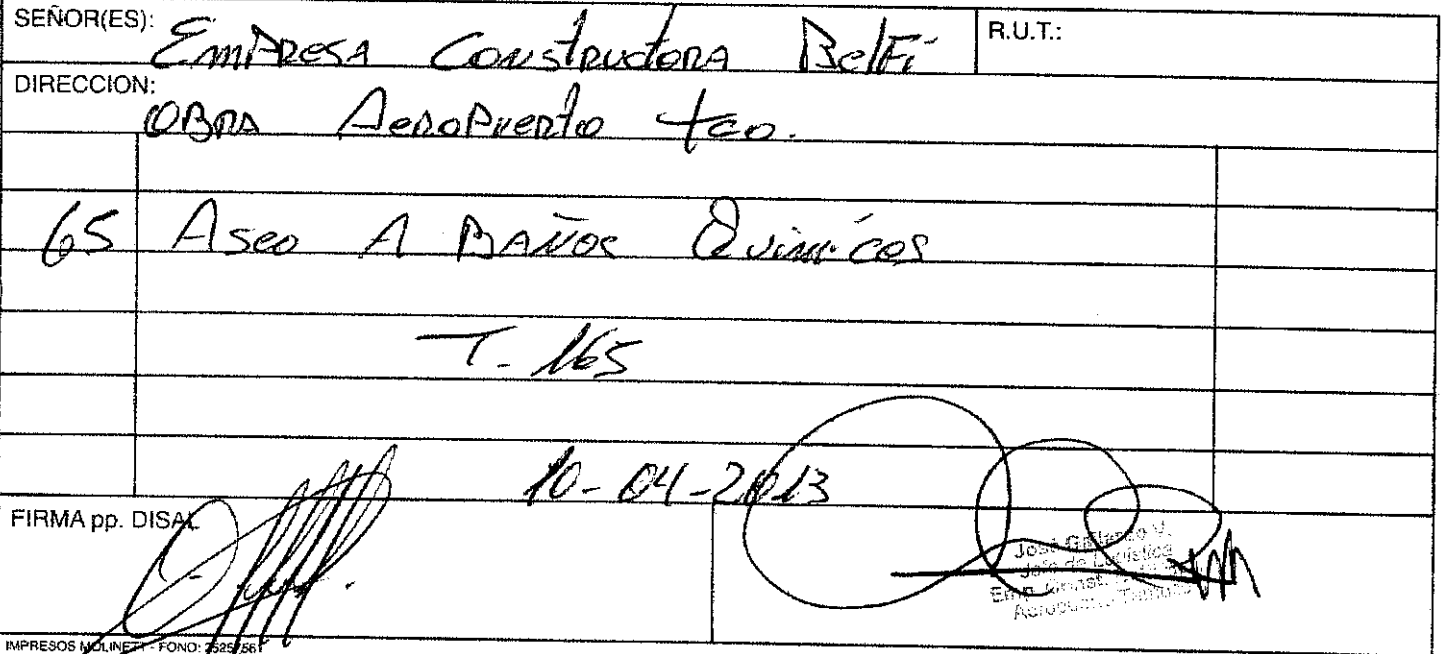 SEÑOR(ES): Empresa Constructora Belfi R.U.T.:
DIRECCION: OBRA Aeropuerto tco.
65 Aseo A BAÑOS Quimicos
T- 165
10-04-2013
FIRMA pp. DISAL
José V.
Jefe de Logística
Emp. Const.
Aeropuerto
IMPRESOS MOLINETT - FONO: